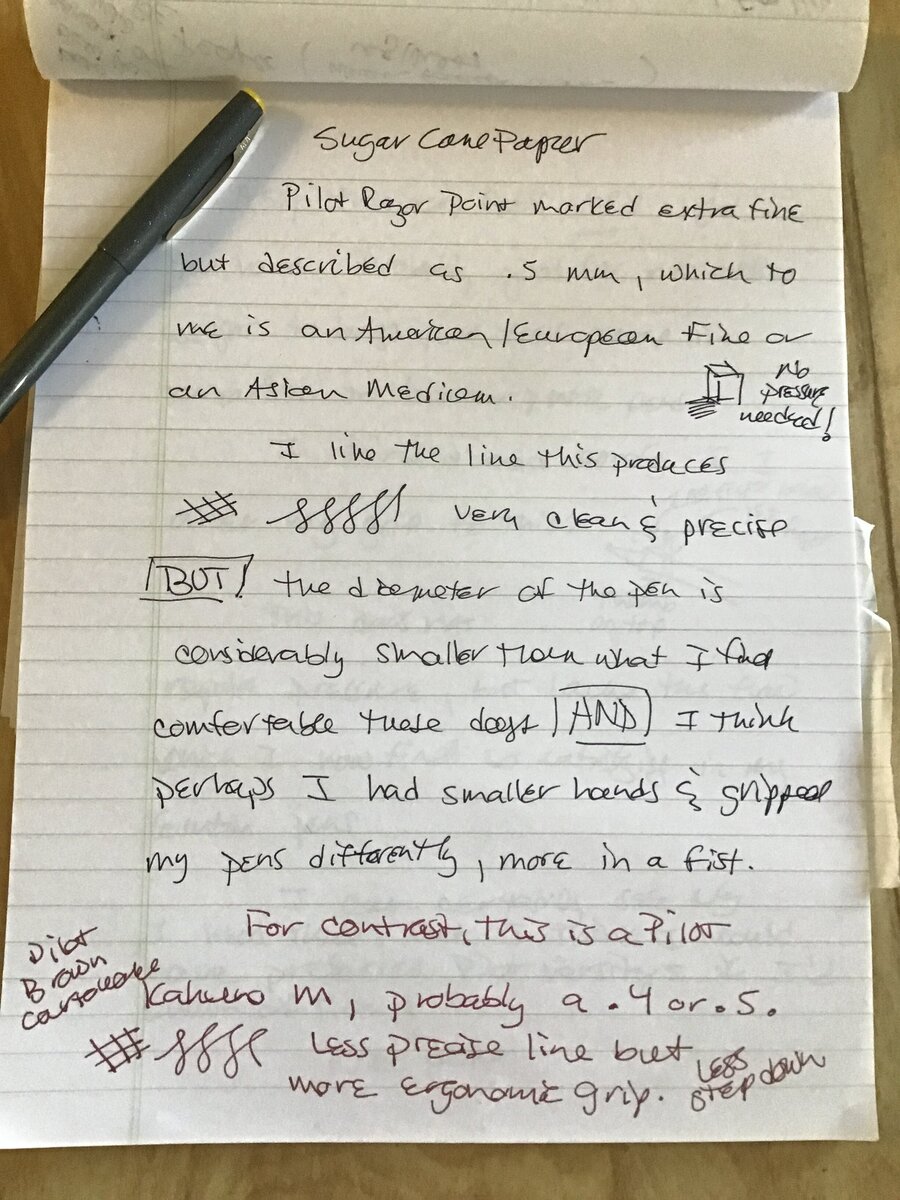 Sugar Cane Paper
Pilot Razor Point marked extra fine
but described as .5 mm, which to
me is an American/European Fine or
an Asian Medium.
No
pressure
needed!
I like the line this produces
very clean & precise
BUT! the diameter of the pen is
considerably smaller than what I find
comfortable these days AND I think
perhaps I had smaller hands & gripped
my pens differently, more in a fist.
For contrast, this is a Pilot
Pilot
Brown
cartridge
Kakuno M, probably a .4 or .5.
Less precise line but
more ergonomic grip.
Less
step down